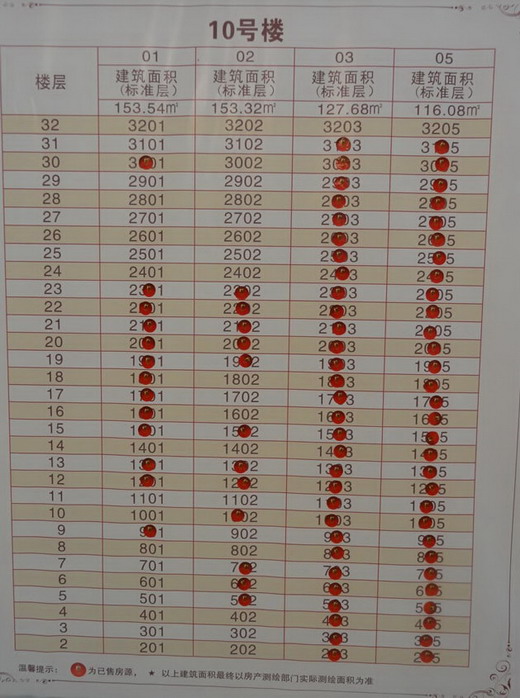 10号楼
楼层 01 02 03 05
建筑面积 建筑面积 建筑面积 建筑面积
(标准层) (标准层) (标准层) (标准层)
153.54㎡ 153.32㎡ 127.68㎡ 116.08㎡
32 3201 3202 3203 3205
31 3101 3102 3103 3105
30 3001 3002 3003 3005
29 2901 2902 2903 2905
28 2801 2802 2803 2805
27 2701 2702 2703 2705
26 2601 2602 2603 2605
25 2501 2502 2503 2505
24 2401 2402 2403 2405
23 2301 2302 2303 2305
22 2201 2202 2203 2205
21 2101 2102 2103 2105
20 2001 2002 2003 2005
19 1901 1902 1903 1905
18 1801 1802 1803 1805
17 1701 1702 1703 1705
16 1601 1602 1603 1605
15 1501 1502 1503 1505
14 1401 1402 1403 1405
13 1301 1302 1303 1305
12 1201 1202 1203 1205
11 1101 1102 1103 1105
10 1001 1002 1003 1005
9 901 902 903 905
8 801 802 803 805
7 701 702 703 705
6 601 602 603 605
5 501 502 503 505
4 401 402 403 405
3 301 302 303 305
2 201 202 203 205
温馨提示: 为已售房源, ★ 以上建筑面积最终以房产测绘部门实际测绘面积为准